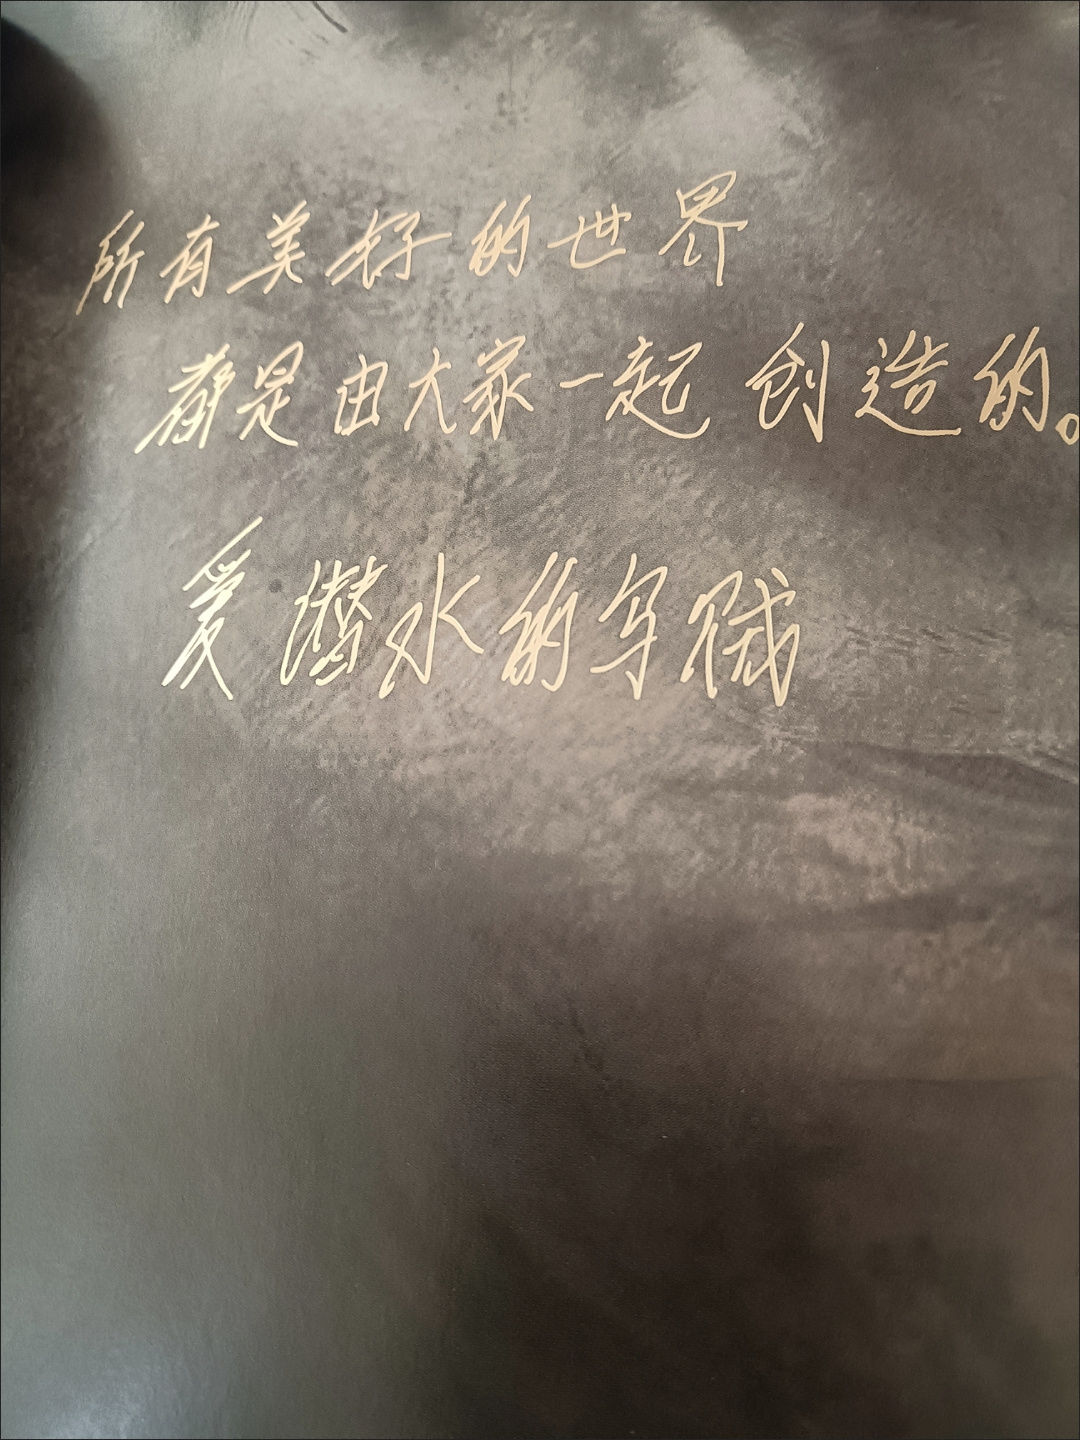 所有美好的世界
都是由大家一起创造的。
爱潜水的乌贼